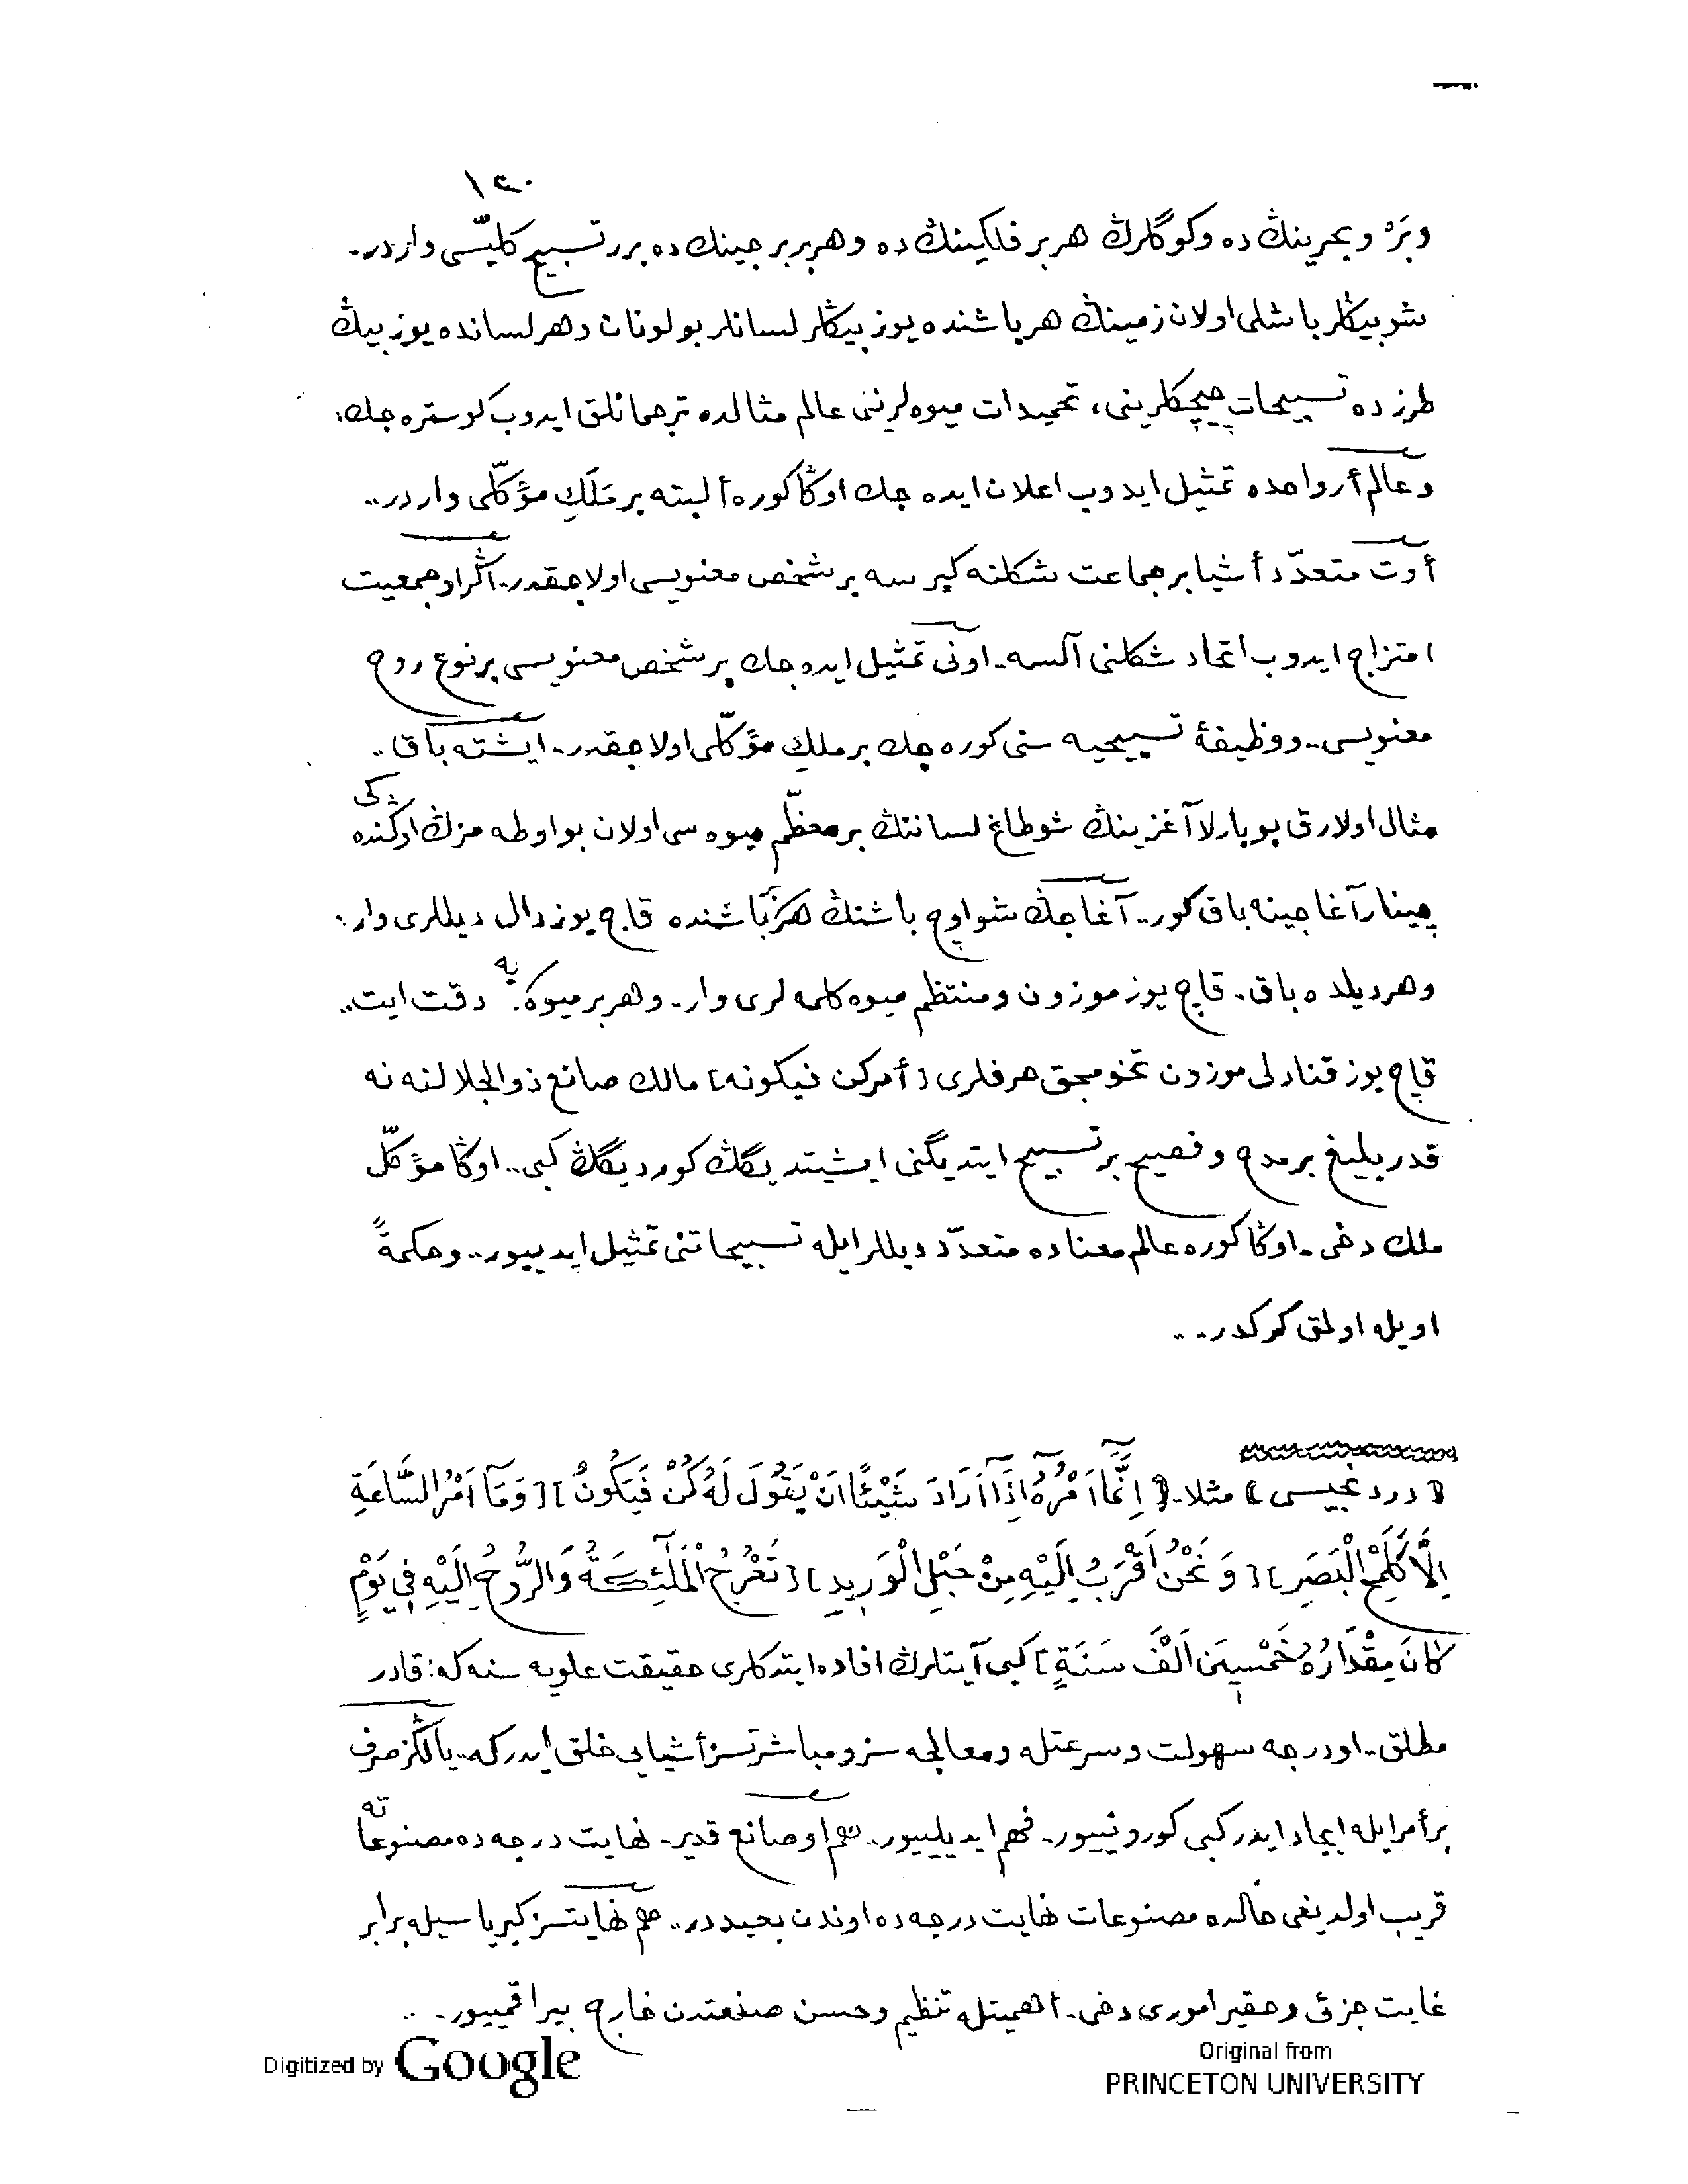 ١٢٠
وبَرْ وبحرينڭ ده وكوگلرڭ هربر فلكينڭ ده وهربر برجينڭ ده برر تسبيح كليّسى واردر.
شو بيڭلر باشلى اولان زمينڭ هر باشنده يوز بيڭلر لسانلر بولونان وهر لسانده يوز بيڭ
طرزده تسبيحات چيچكلرينى، تحميدات ميوه لرينى عالم مثالده ترجمانلق ايدوب كوستره جك،
وعالم أرواحده تمثيل ايدوب اعلان ايده جك اوڭا كوره ألبته بر مَلَكِ مؤكّلى واردر..
أوت متعدّد أشيا بر جماعت شكلنه كيرسه بر شخص معنويسى اولاجقدر. اڭر او جمعيت
امتزاج ايدوب اتحاد شكلنى آلسه. اونى تمثيل ايده جك بر شخص معنويسى بر نوع روح
معنويسى.. ووظيفۀ تسبيحيه سنى كوره جك بر ملكِ مؤكّلى اولاجقدر. ايشته باق..
مثال اولارق بو بارلا آغزينڭ شو طاغ لساننڭ بر معظّم ميوه سى اولان بو اوطه مزڭ اوڭنده كى
چينار آغاجينه باق كور.. آغاجڭ شو اوچ باشنڭ هربر باشنده قاچ يوز دال ديللرى وار.
وهر ديلده باق. قاچ يوز موزون ومنتظم ميوه كلمه لرى وار. وهربر ميوه يه دقت ايت..
قاچ يوز قنادلى موزون تخومجق حرفلرى [أمر كن فيكونه] مالك صانع ذوالجلالنه نه
قدر بليغ بر مدح وفصيح بر تسبيح ايتديگنى ايشيتديگڭ كورديگڭ كبى.. اوڭا مؤكّل
ملك دخى. اوڭا كوره عالم معناده متعدّد ديللر ايله تسبيحاتنى تمثيل ايدييور.. وحكمةً
اويله اولمق كركدر...
[دردنجيسى] مثلا.[ اِنَّمَٓا اَمْرُهُٓ اِذَٓا اَرَادَ شَيْئًا اَنْ يَقُولَ لَهُ كُنْ فَيَكُونُ ] [ وَمَٓا اَمْرُ السَّاعَةِ
اِلَّا كَلَمْحِ الْبَصَرِ ] [ وَ نَحْنُ اَقْرَبُ اِلَيْهِ مِنْ حَبْلِ الْوَرِيدِ ] [ تَعْرُجُ الْمَلٰٓئِكَةُ وَالرُّوحُ اِلَيْهِ فِى يَوْمٍ
كَانَ مِقْدَارُهُ خَمْسِينَ اَلْفَ سَنَةٍ ] كبى آيتلرڭ افاده ايتدكلرى حقيقت علويه سنه كه: قادر
مطلق.. او درجه سهولت وسرعتله ومعالجه سز ومباشرتسز أشيايى خلق ايدر كه.. يالڭز صرف
بر أمر ايله ايجاد ايدر كبى كورونييور. فهم ايديلييور.. هم او صانع قدير. نهايت درجه ده مصنوعاته
قريب اولديغى حالده مصنوعات نهايت درجه ده اوندن بعيددر.. هم نهايتسز كبرياسيله برابر
غايت جزئى وحقير امورى دخى. أهميتله تنظيم وحسن صنعتدن خارج بيراقمييور...
Digitized by Google
Original from
PRINCETON UNIVERSITY